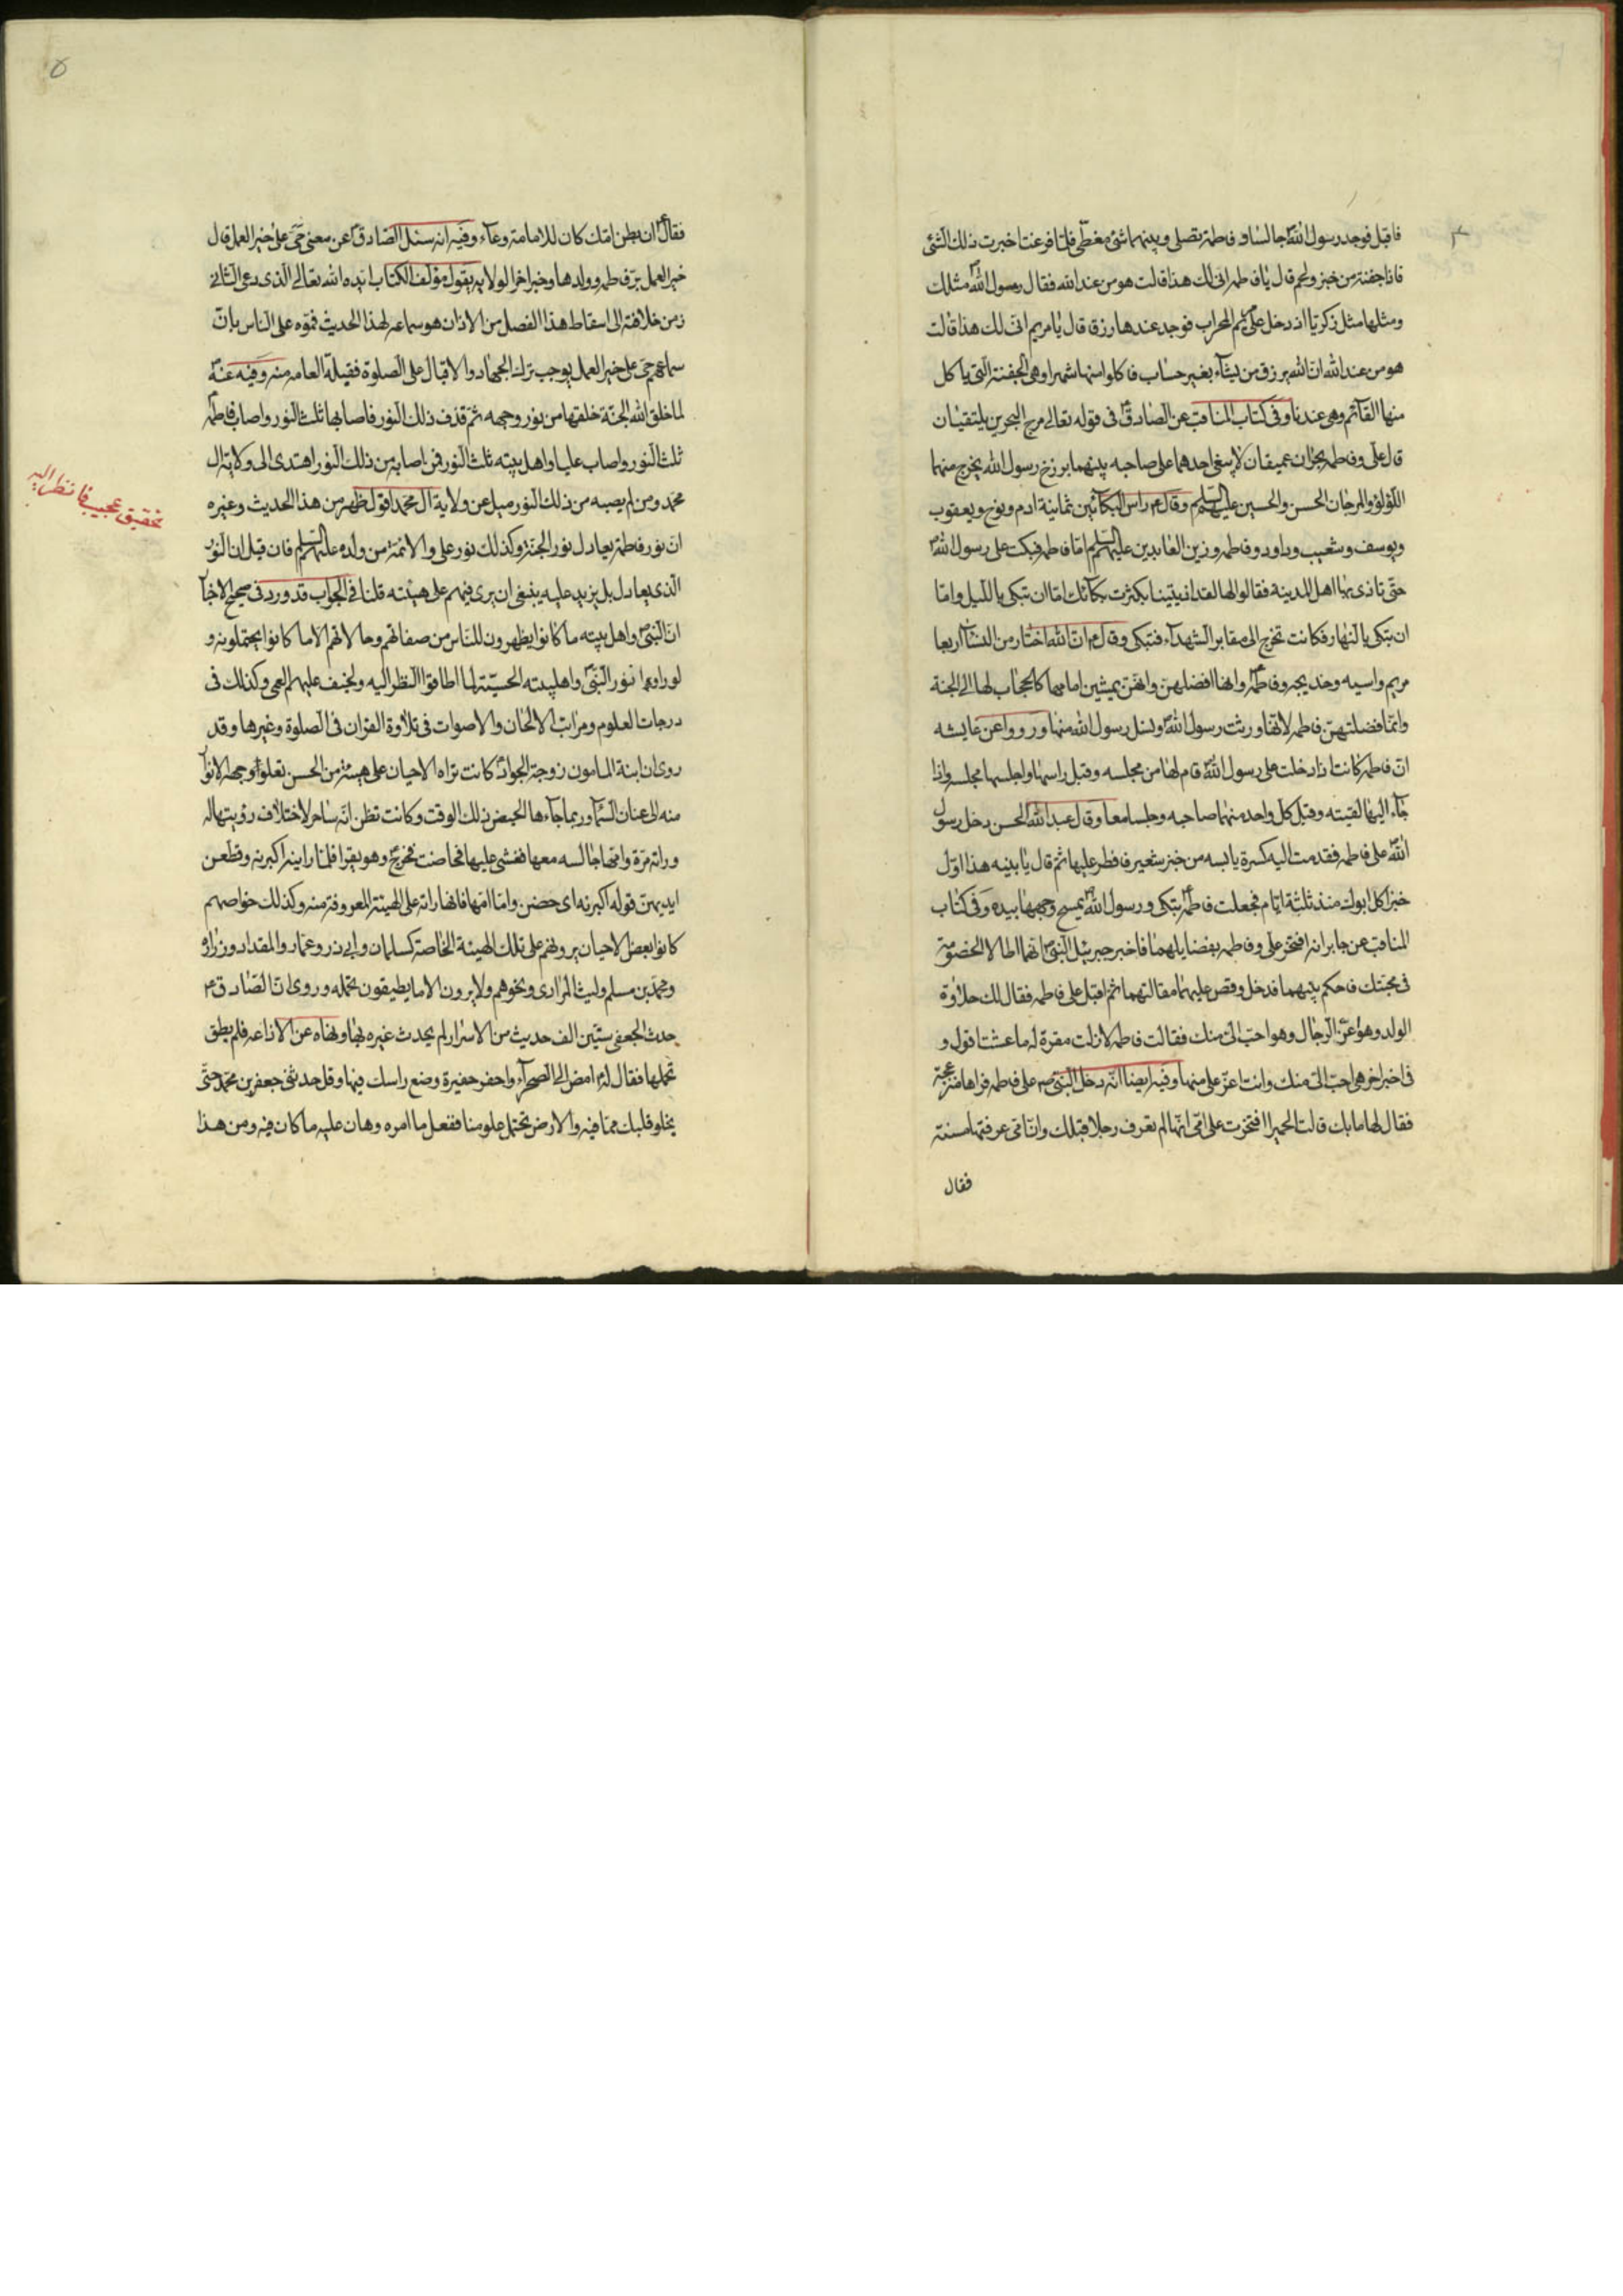 فاقبل فوجد رسول اللهص جالسا و فاطمة تصلى وبينهما شئ مغطى فلما فرغت اخبرت ذلك الشئ
فاذا جفنة من خبز ولحم قال يا فاطمه انى لك هذا قالت هو من عند الله فقال رسول اللهص مثلك
ومثلها مثل زكريا اذ دخل على مريم المحراب فوجد عندها رزقا قال يا مريم انى لك هذا قالت
هو من عند الله ان الله يرزق من يشآء بغير حساب فاكلوا منها شهرا وهى الجفنة التى ياكل
منها القآئم وهى عندنا وفى كتاب المناقب عن الصادقع فى قوله تعالى مرج البحرين يلتقيان
قال على وفاطمه بحران عميقان لا يبغى احدهما على صاحبه بينهما برزخ رسول الله يخرج منهما
اللؤلؤ والمرجان الحسن والحسين عليهم السلم وقالع راس البكائين ثمانية ادم ونوح ويعقوب
ويوسف وشعيب وداود وفاطمه وزين العابدين عليهم السلم اما فاطمه فبكت على رسول اللهص
حتى تاذى بها اهل المدينة فقالوا لها لقد اذيتينا بكثرت بكآئك اما ان تبكى بالليل واما
ان تبكى بالنهار فكانت تخرج الى مقابر الشهدآء فتبكى وقالع ان الله اختار من النسآ اربعا
مريم واسيه وخديجه وفاطمهع وانها افضلهن وانهن يمشين امامها كالحجاب لها الى الجنة
وانما فضلتهن فاطمه لانها ورثت رسول اللهص ونسل رسول الله منها ورووا عن عايشه
ان فاطمه كانت اذا دخلت على رسول اللهص قام لها من مجلسه وقبل راسها واجلسها مجلسه واذا
جآء اليها لقيته وقبل كل واحد منهما صاحبه وجلسا معا وقال عبد الله الحسن دخل رسول
اللهص على فاطمه فقدمت اليه كسرة يابسه من خبز شعير فافطر عليها ثم قال يا بنيه هذا اول
خبز اكل ابوك منذ ثلثة ايام فجعلت فاطمهع تبكى ورسول اللهص يمسح وجهها بيده وفى كتاب
المناقب عن جابر انه افتخر على وفاطمه بفضايلهما فاخبر جبرئيل النبىص انهما اطالا الخصومة
فى محبتك فاحكم بينهما فدخل وقص عليهما مقالتهما ثم اقبل على فاطمه فقال لك حلاوة
الولد وله عز الرجال وهو احب الى منك فقالت فاطمه لا زلت مقرة له ما عشت اقول و
فى اخبر اخر هى احب الى منك وانت اعز على منها وفيه ايضا انه دخل النبىص على فاطمه فراها منزعجة
فقال لها ما بك قالت الحميرا افتخرت على امى انها لم تعرف رجلا قبلك وان امى عرفتها مسنة
فقال
فقالص ان بطن امك كان للامامة وعآء وفيه انه سئل الصادقع عن معنى حى على خير العمل قال
خير العمل بر فاطمه وولدها وخبر اخر الولايه يقول مؤلف الكتاب ايده الله تعالى الذى دعى الثانى
زمن خلافته الى اسقاط هذا الفصل من الاذان هو سماعه لهذا الحديث فموه على الناس بان
سماعهم حى على خير العمل يوجب ترك الجهاد والاقبال على الصلوة فقبلة العامه منه وفيه عنهص
لما خلق الله الجنة خلقها من نور وجهه ثم قذف ذلك النور فاصابها ثلث النور واصاب فاطمهع
ثلث النور واصاب عليا واهل بيته ثلث النور فمن اصابه من ذلك النور اهتدى الى ولاية ال
محمد ومن لم يصبه من ذلك النور ميل عن ولاية ال محمد اقول ظهر من هذا الحديث وغيره
ان نور فاطمة يعادل نور الجنة وكذلك نور على والائمة من ولده عليهم السلم فان قيل ان النور
الذى يعادل بل يزيد عليه ينبغى ان يرى فيهم على هيئته قلنا فى الجواب قد ورد فى صحيح الاخبآ
ان النبىص واهل بيته ما كانوا يظهرون للناس من صفاتهم وحالاتهم الا ما كانوا يحتملونه و
لو راوا انور النبىص واهلبيته الحسية لما اطاقوا النظر اليه ولخيف عليهم العمى وكذلك فى
درجات العلوم ومراتب الالحان والاصوات فى تلاوة القران فى الصلوة وغيرها وقد
روى ان ابنة المامون زوجة الجوادع كانت تراه الاحيان على هيئة من الحسن تعلوا وجهه الانوآ
منه الى عنان السمآ وربما جآءها الحيض ذلك الوقت وكانت تظن انه ساحر لاختلاف رؤيتها له
وراته مرة واختها جالسه معها فغشى عليها فحاضت فخرجع وهو يقرا فلما راينه اكبرنه وقطعن
ايديهن قوله اكبرنه اى حضن واما امها فانها راته على الهيئة المعروفة منه وكذلك خواصهم
كانوا بعض الاحيان يرونهم على تلك الهيئة الخاصة كسلمان وابى ذر وعمار والمقداد وزرارة
ومحمد بن مسلم وليث المرادى ونحوهم ولا يرون الا ما يطيقون تحمله وروى ان الصادقع
حدث الجعفى ستين الف حديث من الاسرار لم يحدث غيره بها ونهاه عن الاذاعه فلم يطق
تحملها فقال لهع امض الى الصحرآء واحفر حفيرة وضع راسك فيها وقل حدثنى جعفر بن محمد حتى
يخلو قلبك مما فيه والارض تحتمل علومنا ففعل ما امره وهان عليه ما كان فيه ومن هذا
تحقيق عجيب فانظر اليه